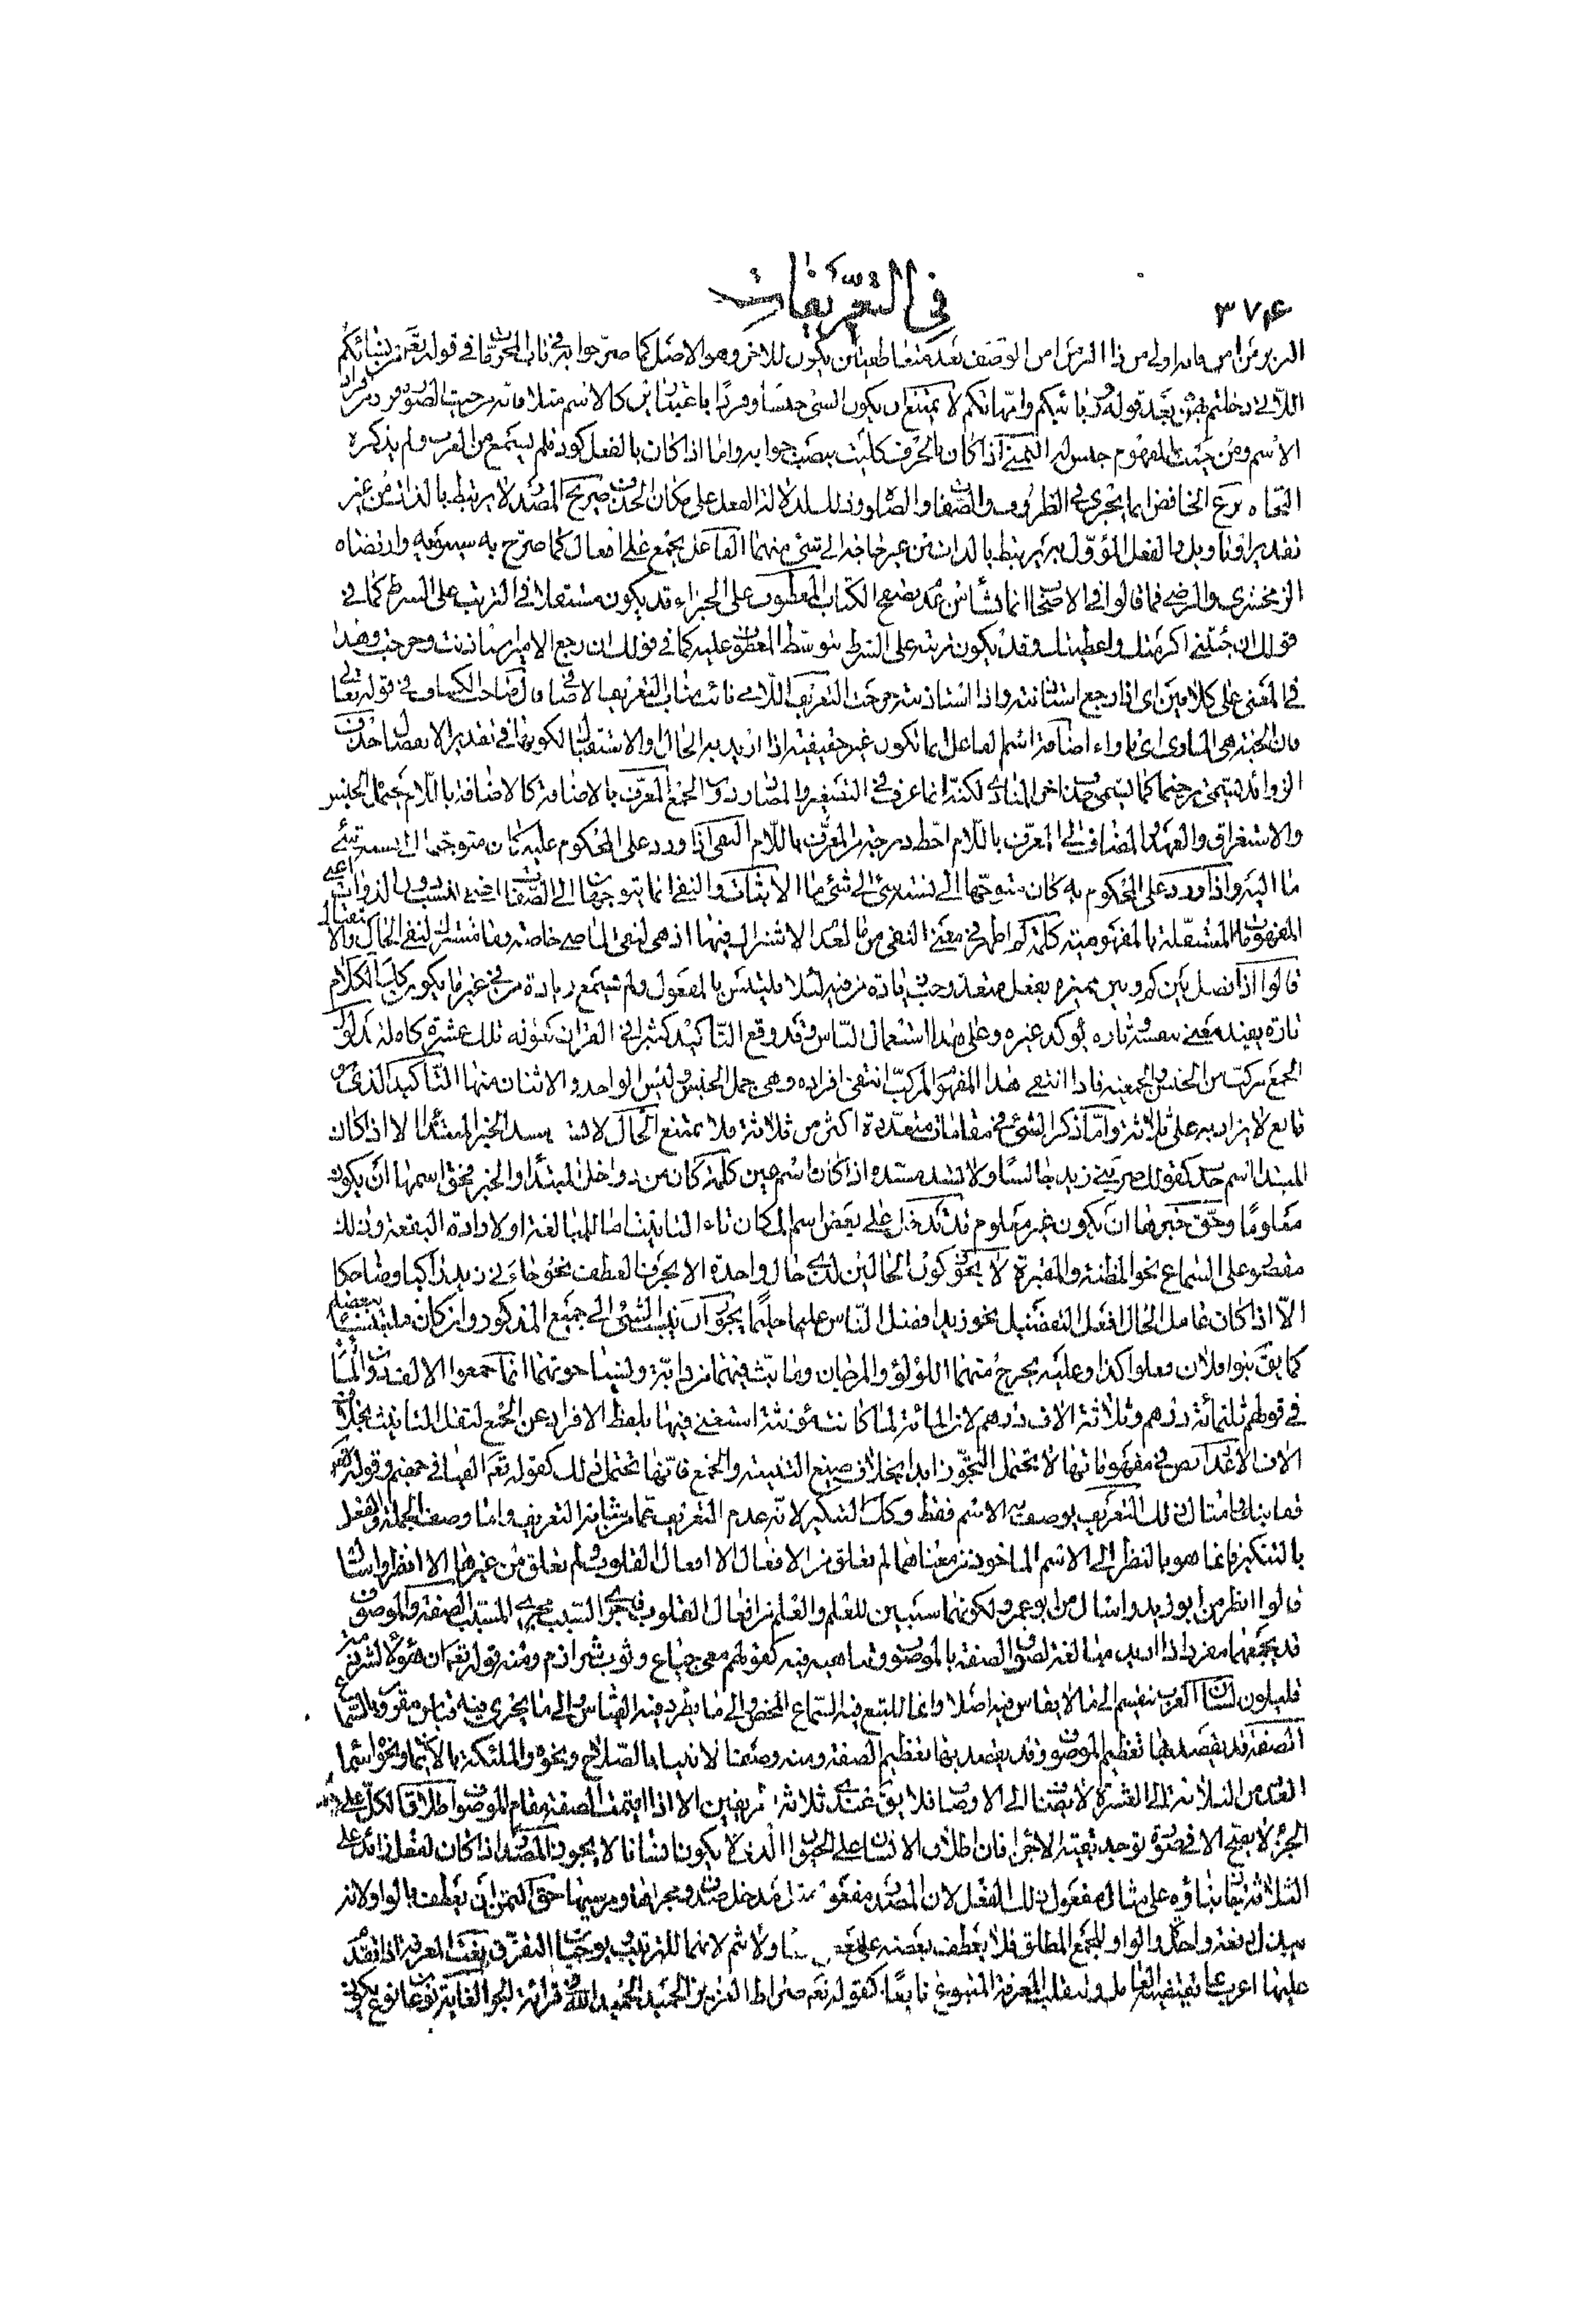 ٣٧٤
في التعريفات
اللائي دخلتم بهن بعد قوله وربائبكم وامهاتكم لا يمتنع ان يكون الشئ جنسا وفردا باعتبارين كالاسم مثلا فانه من حيث الصورة فرد من افراد
الاسم ومن حيث المفهوم جنس له التمني اذا كان بالحرف كليت ينصب جوابه واما اذا كان بالفعل كود فلم يسمع من العرب ولم يذكره
النحاة نزع الخافض انما يجري في الظروف والصفات والصلات وذلك لدلالة الفعل على مكان الحذف صريح المصدر لا يرتبط بالذات من غير
تقدير او تأويل والفعل المؤول به يرتبط بالذات من غير حاجة الى شئ منهما الفاعل يجمع على افعال كما صرح به سيبويه وارتضاه
الزمخشري والرضي فما قالوا في الاصحاب انما نشأ من عدم تصفح الكتاب المعطوف على الجزاء قد يكون مستقلا في الترتب على الشرط كما في
قولك ان جئتني اكرمتك واعطيتك وقد يكون ترتبه على الشرط بتوسط المعطوف عليه كما في قولك ان رجع الامير استأذنت وخرجت وهذا
في المعنى على كلامين اي اذا رجع استأذنته واذا استأذنته خرجت التعريف اللامي نائب مناب التعريف الاضافي قال صاحب الكشاف في قوله تعالى
فان الجنة هي المأوى اي مأواه اضافة اسم الفاعل انما تكون غير حقيقية اذا اريد به الحال او الاستقبال لكونها في تقدير الانفصال حذف
الزوائد يسمى ترخيما كما يسمى حذف اخر المنادى لكنه انما عرف في التصغير والمصادر والجمع المعرف بالاضافة كالاضافة باللام يحتمل الجنس
والاستغراق والعهد المضاف الى المعرف باللام احط درجة من المعرف باللام النفي اذا ورد على المحكوم عليه كان متوجها الى نسبة شئ
ما اليه واذا ورد على المحكوم به كان متوجها الى نسبته الى شئ ما الاثبات والنفي انما يتوجهان الى الصفات اعني النسب دون الذوات اعني
المفهومات المستقلة بالمفهومية كلمة لم اظهر في معنى النفي من ما لعدم الاشتراك فيها اذ هي لنفي الماضي خاصة وما مشترك لنفي الحال والا
قالوا اذا فصل بين كم وبين مميزه بفعل متعد وجب زيادة من فيه لئلا يلتبس بالمفعول ولم يسمع زيادة من في غير ما يكون كليا الكلام
تارة يفيد معنى بنفسه وتارة يؤكد غيره وعلى هذا استعمال الناس وقد وقع التأكيد كثيرا في القرآن كقوله تلك عشرة كاملة مدلول
الجمع مركب من الجنس والجمعية فاذا انتفى هذا المفهوم المركب انتفى افراده وهي جمل الجنس وليس الواحد والاثنان منها التأكيد الذي هو
تابع لا يزاد به على ثلاثة واما ذكر الشئ في مقامات متعددة اكثر من ثلاثة فلا يمتنع الحال لا تسد مسد الخبر للمبتدأ الا اذا كان
المبتدأ اسم حدث كقولك ضربي زيد جالسا ولا تسد مسده اذا كان اسم عين كلمة كان من دواخل المبتدأ والخبر فحق اسمها ان يكون
معلوما وحق خبرها ان يكون غير معلوم قد تدخل على بعض اسم المكان تاء التأنيث اما للمبالغة او لارادة البقعة وذلك
مقصور على السماع نحو المظنة والمقبرة لا يجوز كون الحالين لذي حال واحدة الا بحرف العطف نحو جاءني زيد راكبا وضاحكا
الا اذا كان عامل الحال افعل التفضيل نحو زيد افضل الناس عليما حليما يجوز ان ينسب الشئ الى جميع المذكور وان كان ملتبسا ببعضهم
كما يقال بنو فلان فعلوا كذا وعليه يخرج منهما اللؤلؤ والمرجان وما بث فيهما من دابة ونسيا حوتهما انما جمعوا الالف دون المائة
في قولهم ثلثمائة درهم وثلاثة الاف درهم لان المائة لما كانت مؤنثة استغنى فيها بلفظ الافراد عن الجمع لثقل التأنيث بخلاف
الالف الاعداد نص في مفهوماتها لا تحتمل التجوز ابدا بخلاف صيغ التثنية والجمع فانها تحتمل ذلك كقوله تعالى القيا في جهنم وقوله
قفا نبك وامثال ذلك التعريف يوصف به الاسم فقط وكذا التنكير لانه عدم التعريف عما من شأنه التعريف واما وصف الجملة والفعل
بالتنكير فانما هو بالنظر الى الاسم المأخوذ من معناهما لم يعلق من الافعال الا افعال القلوب ولم يعلق من غيرها الا انظر واسأل
قالوا انظر من ابو زيد واسأل من ابو عمرو لكونهما سببين للعلم والعلم من افعال القلوب فاجرى السبب مجرى المسبب الصفة والموصوف
قد يجمعهما مفرد اذا اريد مبالغة لصوق الصفة بالموصوف وتناهيه فيه كقولهم معى جياع وثوب شراذم ومنه قوله تعالى ان هؤلاء لشرذمة
قليلون لسان العرب ينقسم الى ما لا يقاس فيه اصلا وانما المتبع فيه السماع المحض والى ما يطرد فيه القياس والى ما يجري فيه قياس مقرون بالسماع
الصفة قد يقصد بها تعظيم الموصوف وقد يقصد بها تعظيم الصفة ومنه وصف الانبياء بالصلاح ونحوه والملئكة بالايمان ونحوه اسماء
العدد من الثلاثة الى العشرة لا تضاف الى الاوصاف فلا يقال عندي ثلاثة ظريفين الا اذا اقيمت الصفة مقام الموصوف اطلاق الكل على
الجزء لا يصح الا في صورة توجد بقية الاجزاء فان اطلاق الانسان على الحيوان الذي لا يكون انسانا لا يجوز المصدر اذا كان لفعل زائد على
الثلاثة بناؤه على مثال مفعول ذلك الفعل لان المصدر مفعول
عليها اعربت بما يقتضيه العامل وتنقلب المعرفة المتبوعة تابعا كقوله تعالى صراط العزيز الحميد الله